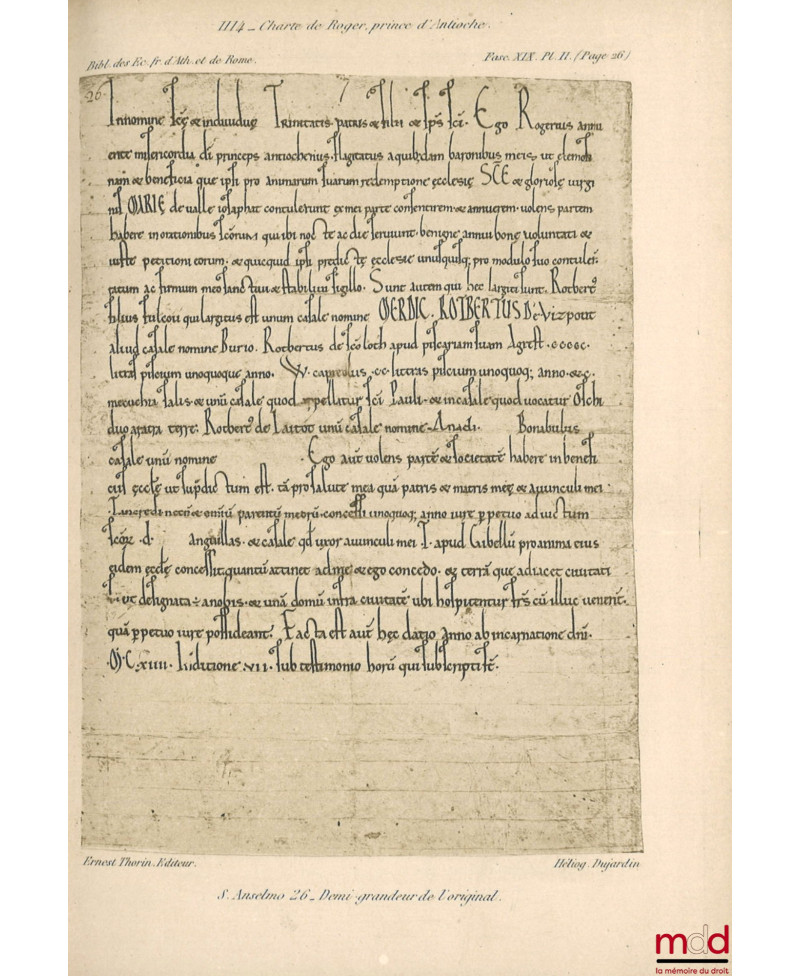 1114 _ Charte de Roger, prince d'Antioche.
Bibl. des Ec. fr. d'Ath. et de Rome.
Fasc. XIX. Pl. II. (Page 26)
26
7
In nomine scę & individuę Trinitatis. patris & filii & sp̄s sc̄i. Ego Rogerius annu
ente misericordia dī princeps antiochenus. flagitatus a quibusdam baronibus meis, ut elemosi
nam & beneficia que ipsi pro animarum suarum redemptione ecclesię SC̄E & gloriosę virgi
nis MARIĘ de valle iosaphat contulerunt ex mei parte consentirem & annuerem. volens partem
habere in orationibus sc̄orum qui ibi nocte ac die serviunt. benigne annui bonę voluntati &
iustę petitioni eorum. & quicquid ipsi predictę ecclesię unusquisq; pro modulo suo contuler̄.
ratum ac firmum meo sanctiui & stabilivi sigillo. Sunt autem qui hec largiti sunt. Rotbert9
filius fulcoii qui largitus est unum casale nomine MERDIC. ROTBERTUS De Vizpont
aliud casale nomine Burio. Rotbertus de sc̄o loth apud piscariam suam Agrest. cccc.
litras piscium unoquoque anno. W. capreolus. cc. littras piscium unoquoq; anno. & c.
mecuchia salis. & unū casale quod appellatur sc̄i Pauli. & in casale quod vocatur Oschi
duo aratra terrę. Rotbert9 de Laitot unū casale nomine. Anadi. Bonabulus
casale unū nomine . Ego aut̄ volens partē & societatē habere in benefi
ciis ęcclę̄ ut sup̄dictum est. tā pro salute mea quā patris & matris męę & avunculi mei
Tancredi necn̄ & om̄iū parentū meorū. concessi unoquoq; anno iure p̄petuo ad victum
sc̄orȝ .d. Anguillas. & casale qd̄ uxor avunculi mei T. apud Gibellū pro anima eius
eidem ęcclę̄ concessit. quantū attinet ad me & ego concedo. & terrā que adiacet civitati
ut designata ÷ a nobis. & unā domū infra civitatē ubi hospitentur frs̄ cū illuc venerit̄.
quā p̄petuo iure possideant. Facta est aut̄ hęc datio Anno ab incarnatione dn̄i.
M̊. C. xiiii. Indictione vii. sub testimonio horū qui subscripti st̄.
Ernest Thorin. Editeur.
Héliog. Dujardin
S. Anselmo 26 _ Demi-grandeur de l'original.
mdd
la mémoire du droit